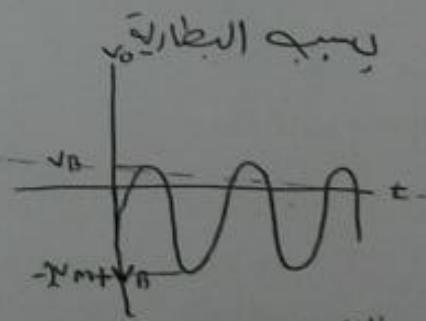 بسبب البطارية
Vo
VB
t
-2Vm+VB